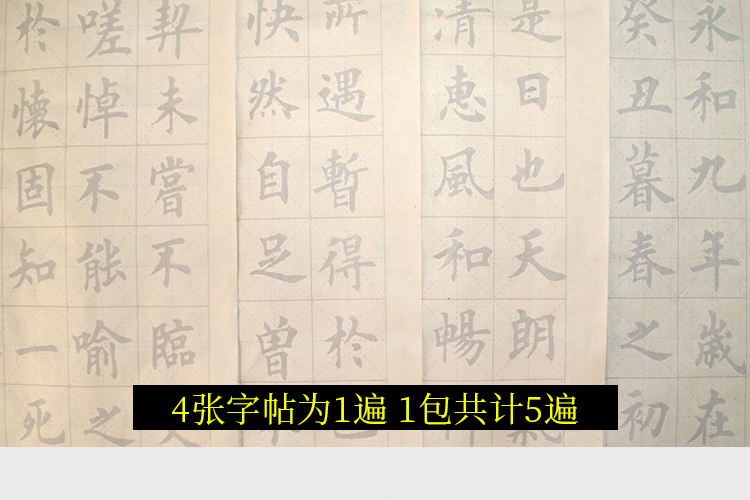 永和九年歲在
癸丑暮春之初
是日也天朗氣
清惠風和暢
所遇暫得於
快然自足曾
契未嘗不臨
嗟悼不能喻之
於懷固知一死
4张字帖为1遍 1包共计5遍